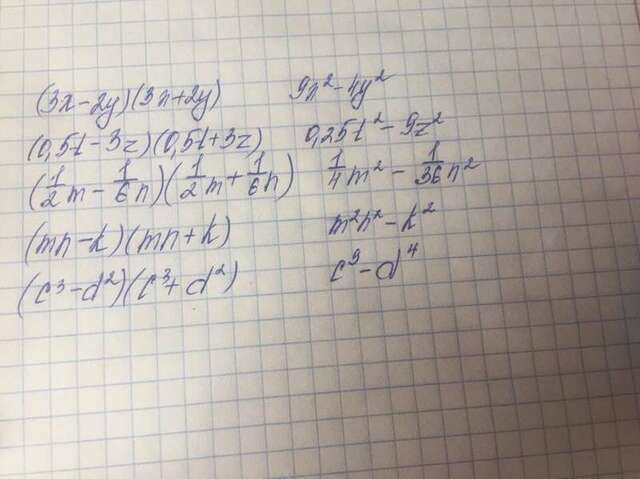 (3x-2y)(3x+2y) 9x²-4y²
(0,5t-3z)(0,5t+3z) 0,25t²-9z²
(1/2m-1/6n)(1/2m+1/6n) 1/4m²-1/36n²
(mn-k)(mn+k) m²n²-k²
(c³-d²)(c³+d²) c⁹-d⁴